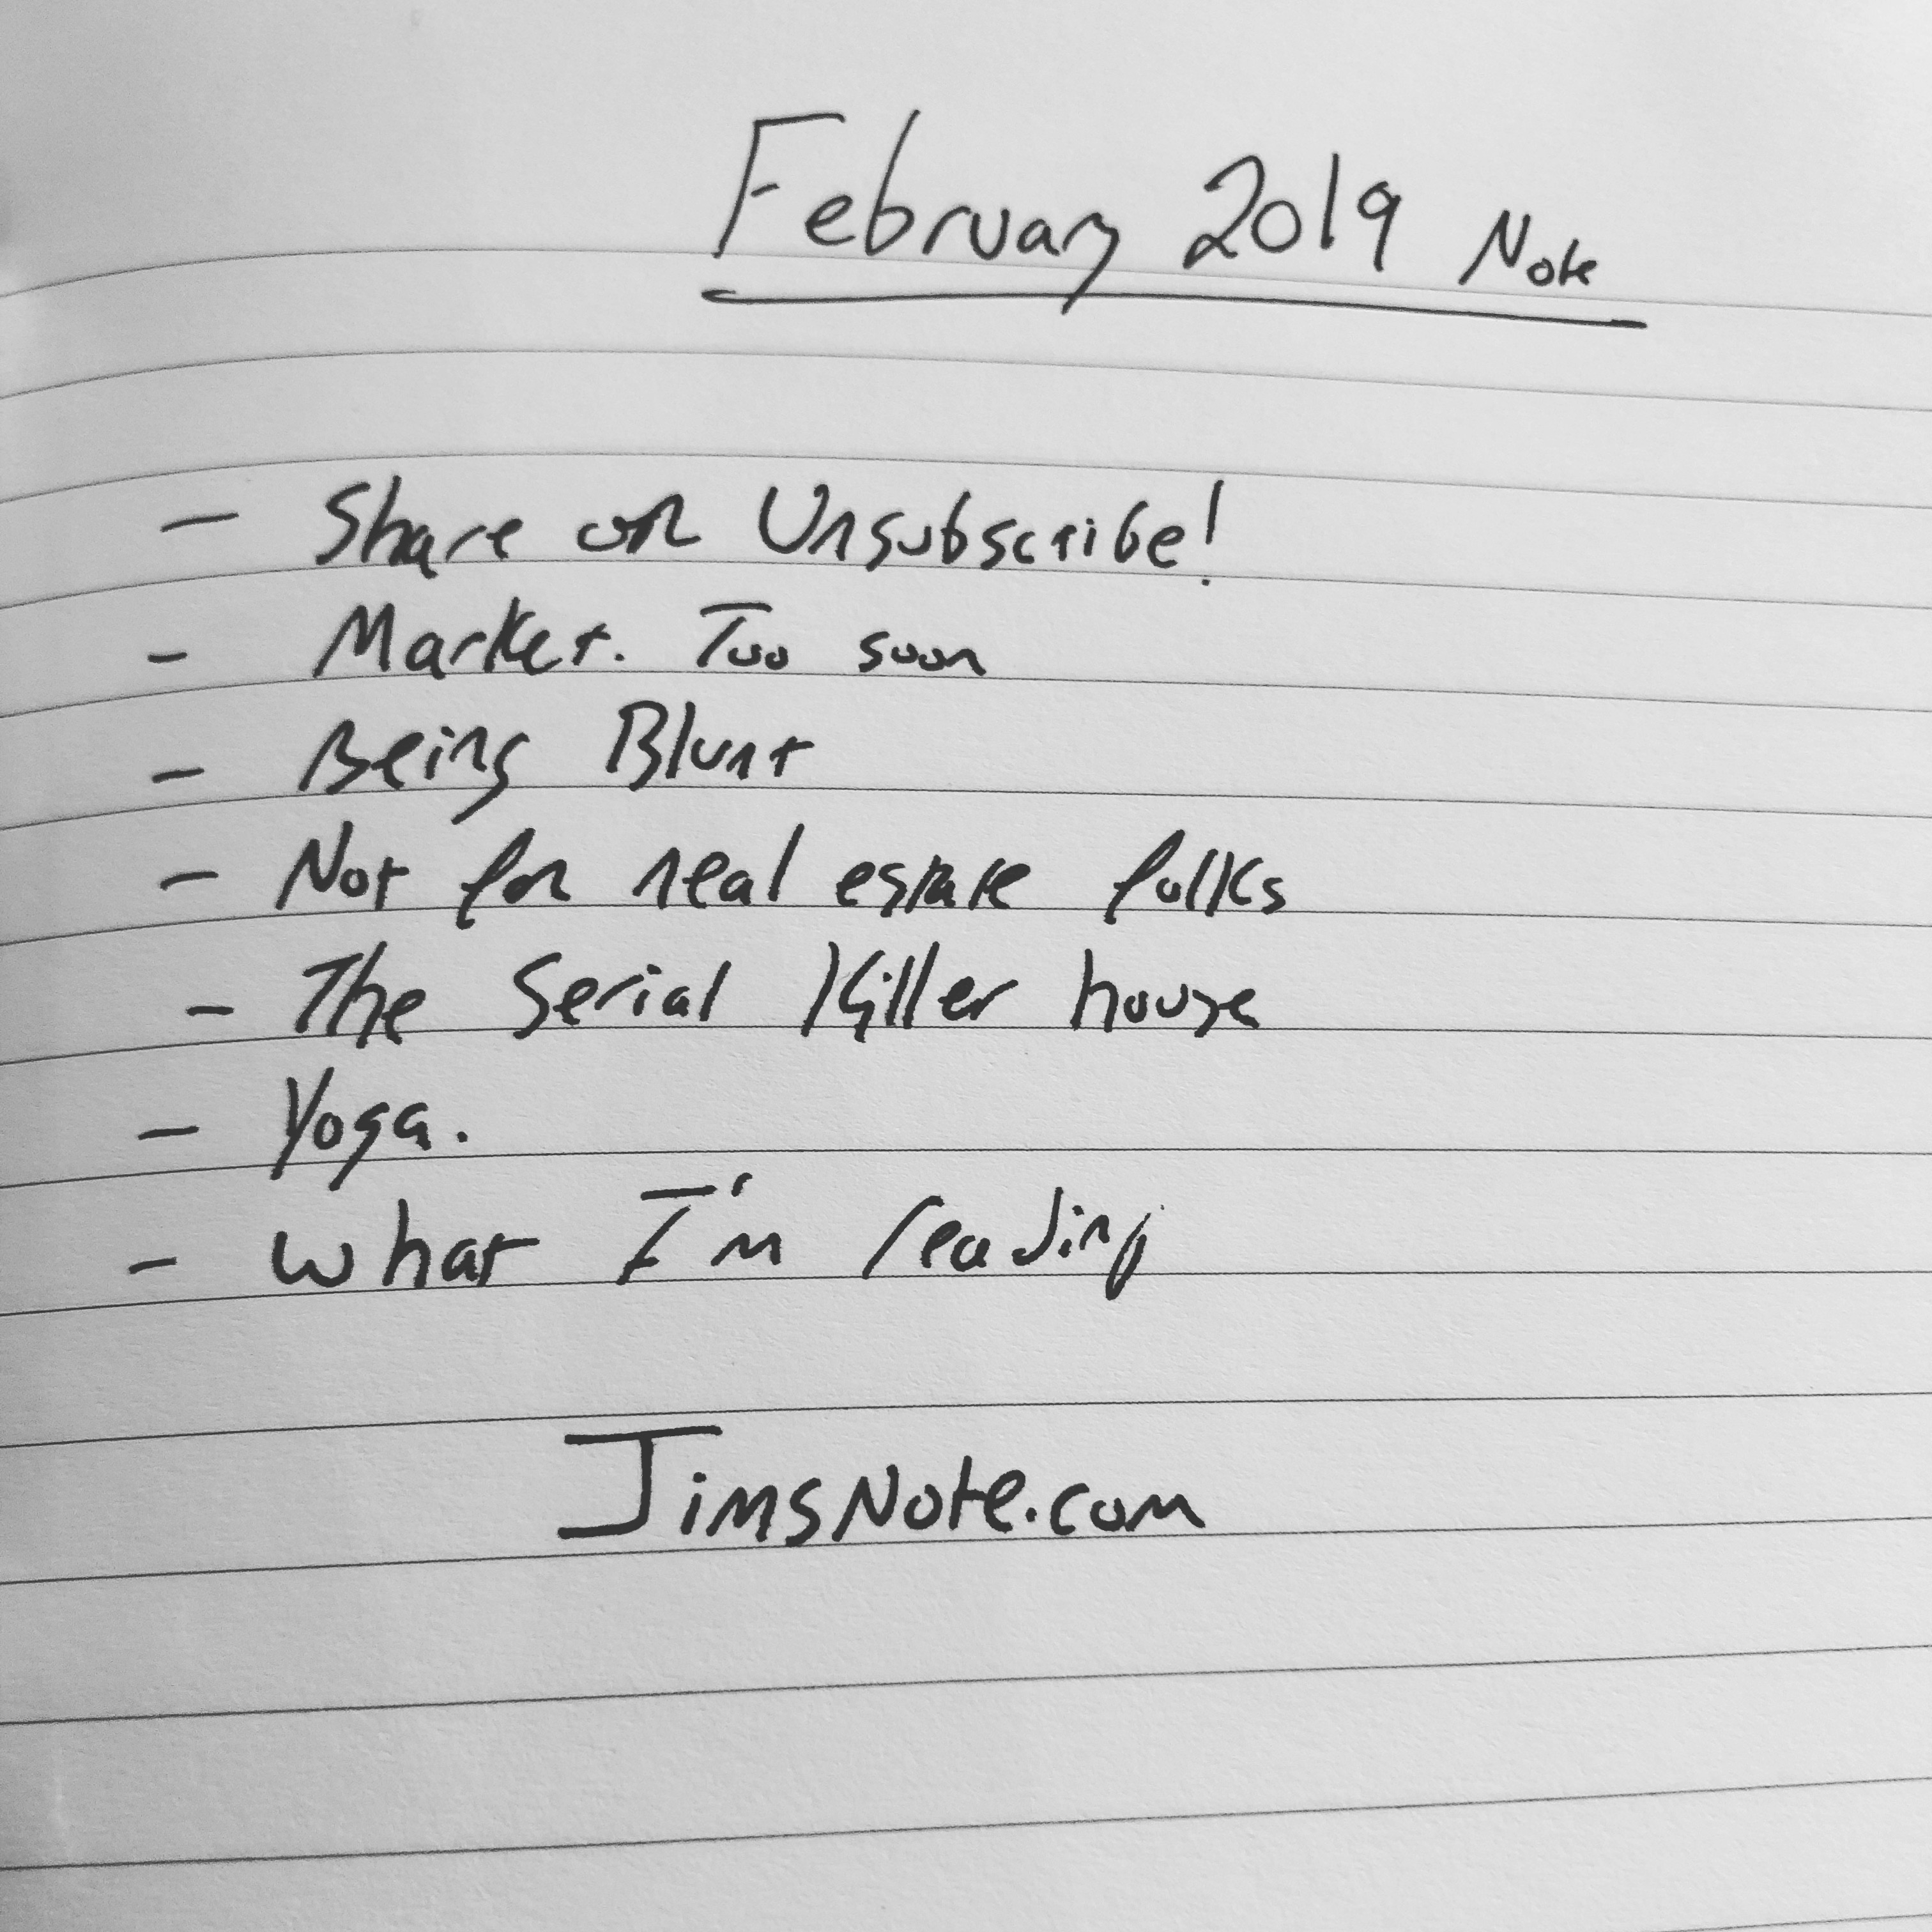 February 2019 Note
- Share or Unsubscribe!
- Market. Too soon
- Being Blunt
- Not for real estate folks
- The Serial Killer house
- Yoga.
- What I'm reading
JimsNote.com